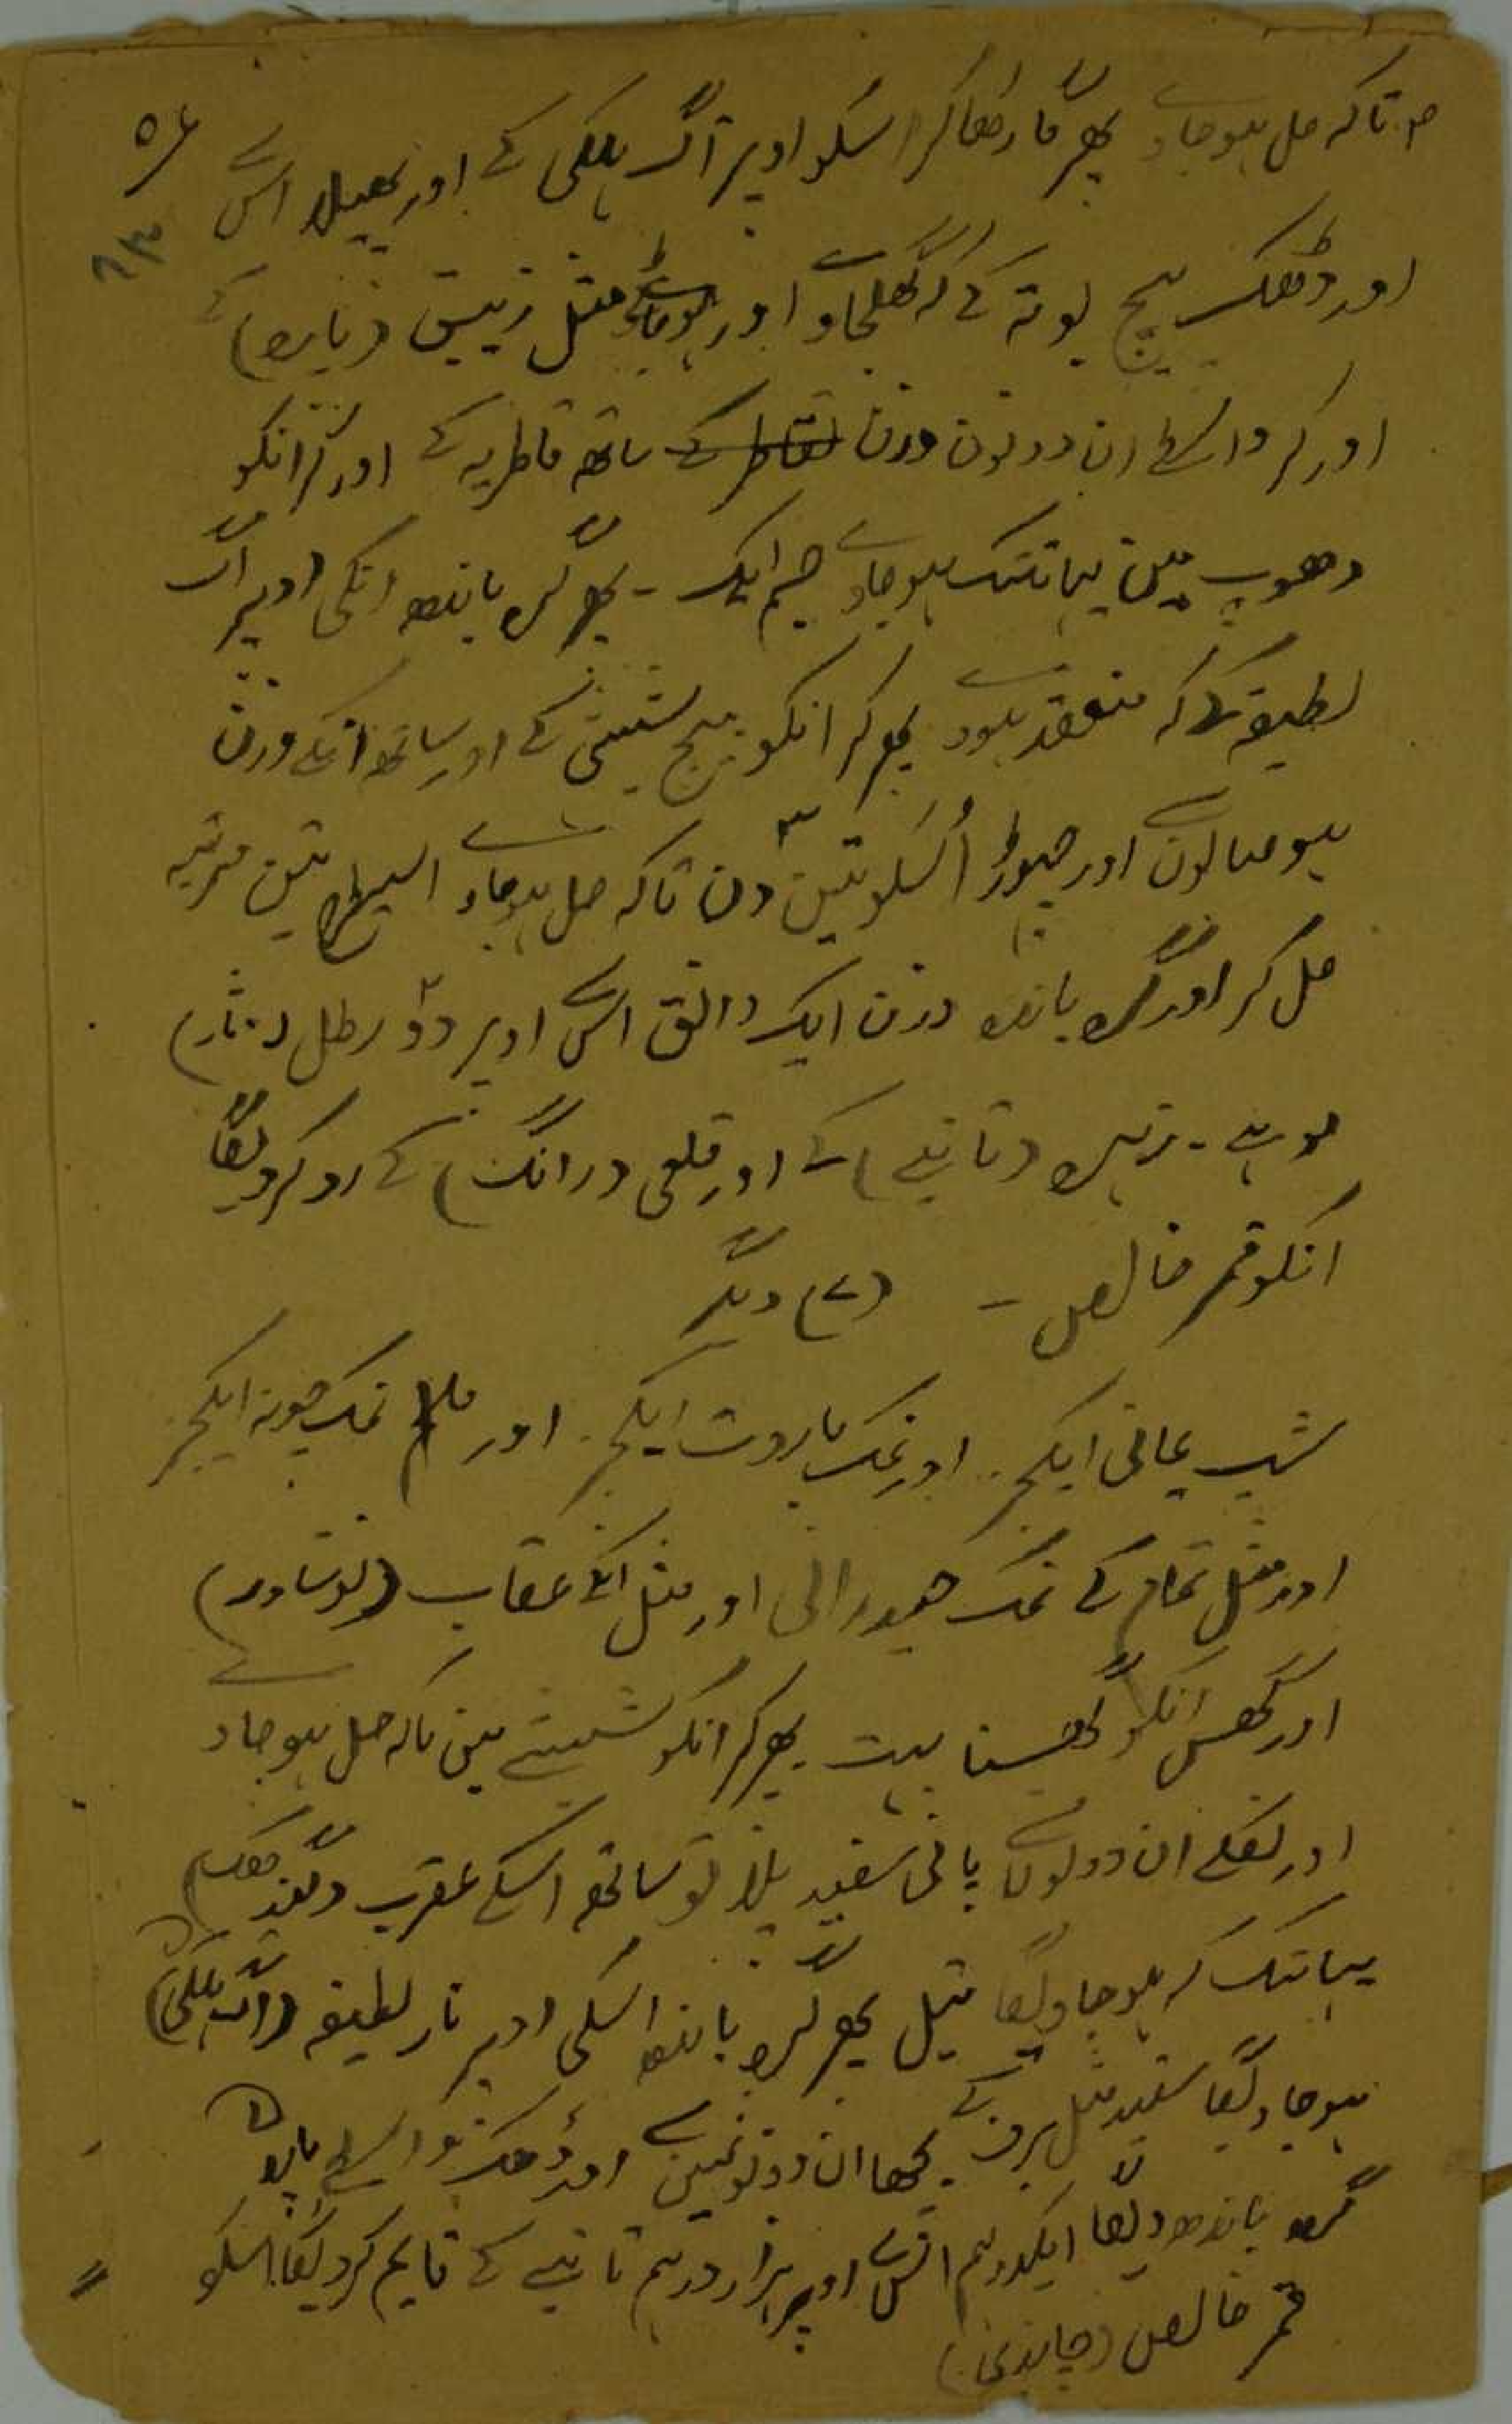 ۵۶
۶۳
تاکہ حل ہوجاوے پھر گاڑھا کر اسکو اوپر آگ ہلکی کے اور پھیلا اسے
اور ڈھک بیچ بوتہ کے کہ گھلجاوے اور ہوجائے مثل زیبق (پارہ) کے
اور کر واسطے ان دونوں وزن ساتھ قاطریہ کے اور کر انکو
دھوپ میں یہانتک ہوجاوے جسم ایک - پھر گرہ باندھ انکی اوپر آگ
لطیفہ کے کہ منعقد ہووے پھر کر انکو بیچ شیشی کے اور ساتھ انکے وزن
اور چھوڑ اُسکو تین دن تاکہ حل ہوجاوے اسیطرح تین مرتبہ
حل کر اور گرہ باندھ وزن ایک دانق اس اوپر دو رطل
زہرہ (تانبے) کے اور قلعی (رانگ) کے رد کردیگا
انکو قمر خالص - (۷) دیگر
شب یمانی ایکجز اور نمک باروت ایکجز. اور نمک چونہ ایکجز
اور مثل تمام کے نمک حیدرانی اور مثل انکے عقاب (نوشادر)
اور گھس انکو گھسنا بہت پھر کر انکو شیشے میں تاکہ حل ہوجاوے
اور نکلے ان دونوں پانی سفید پلا تو ساتھ اسکے عقرب (گندھک)
یہانتک کہ ہوجاویگا تیل پھر گرہ باندھ اسکی اوپر نار لطیفہ (آگ ہلکی)
ہوجاویگا سفید مثل برف کے بچھا ان دونوں واسطے پارہ
گرہ باندھ دیگا ایکدرہم اس اوپر ہزار درہم تانبے کے قایم کردیگا اسکو
قمر خالص (چاندی)